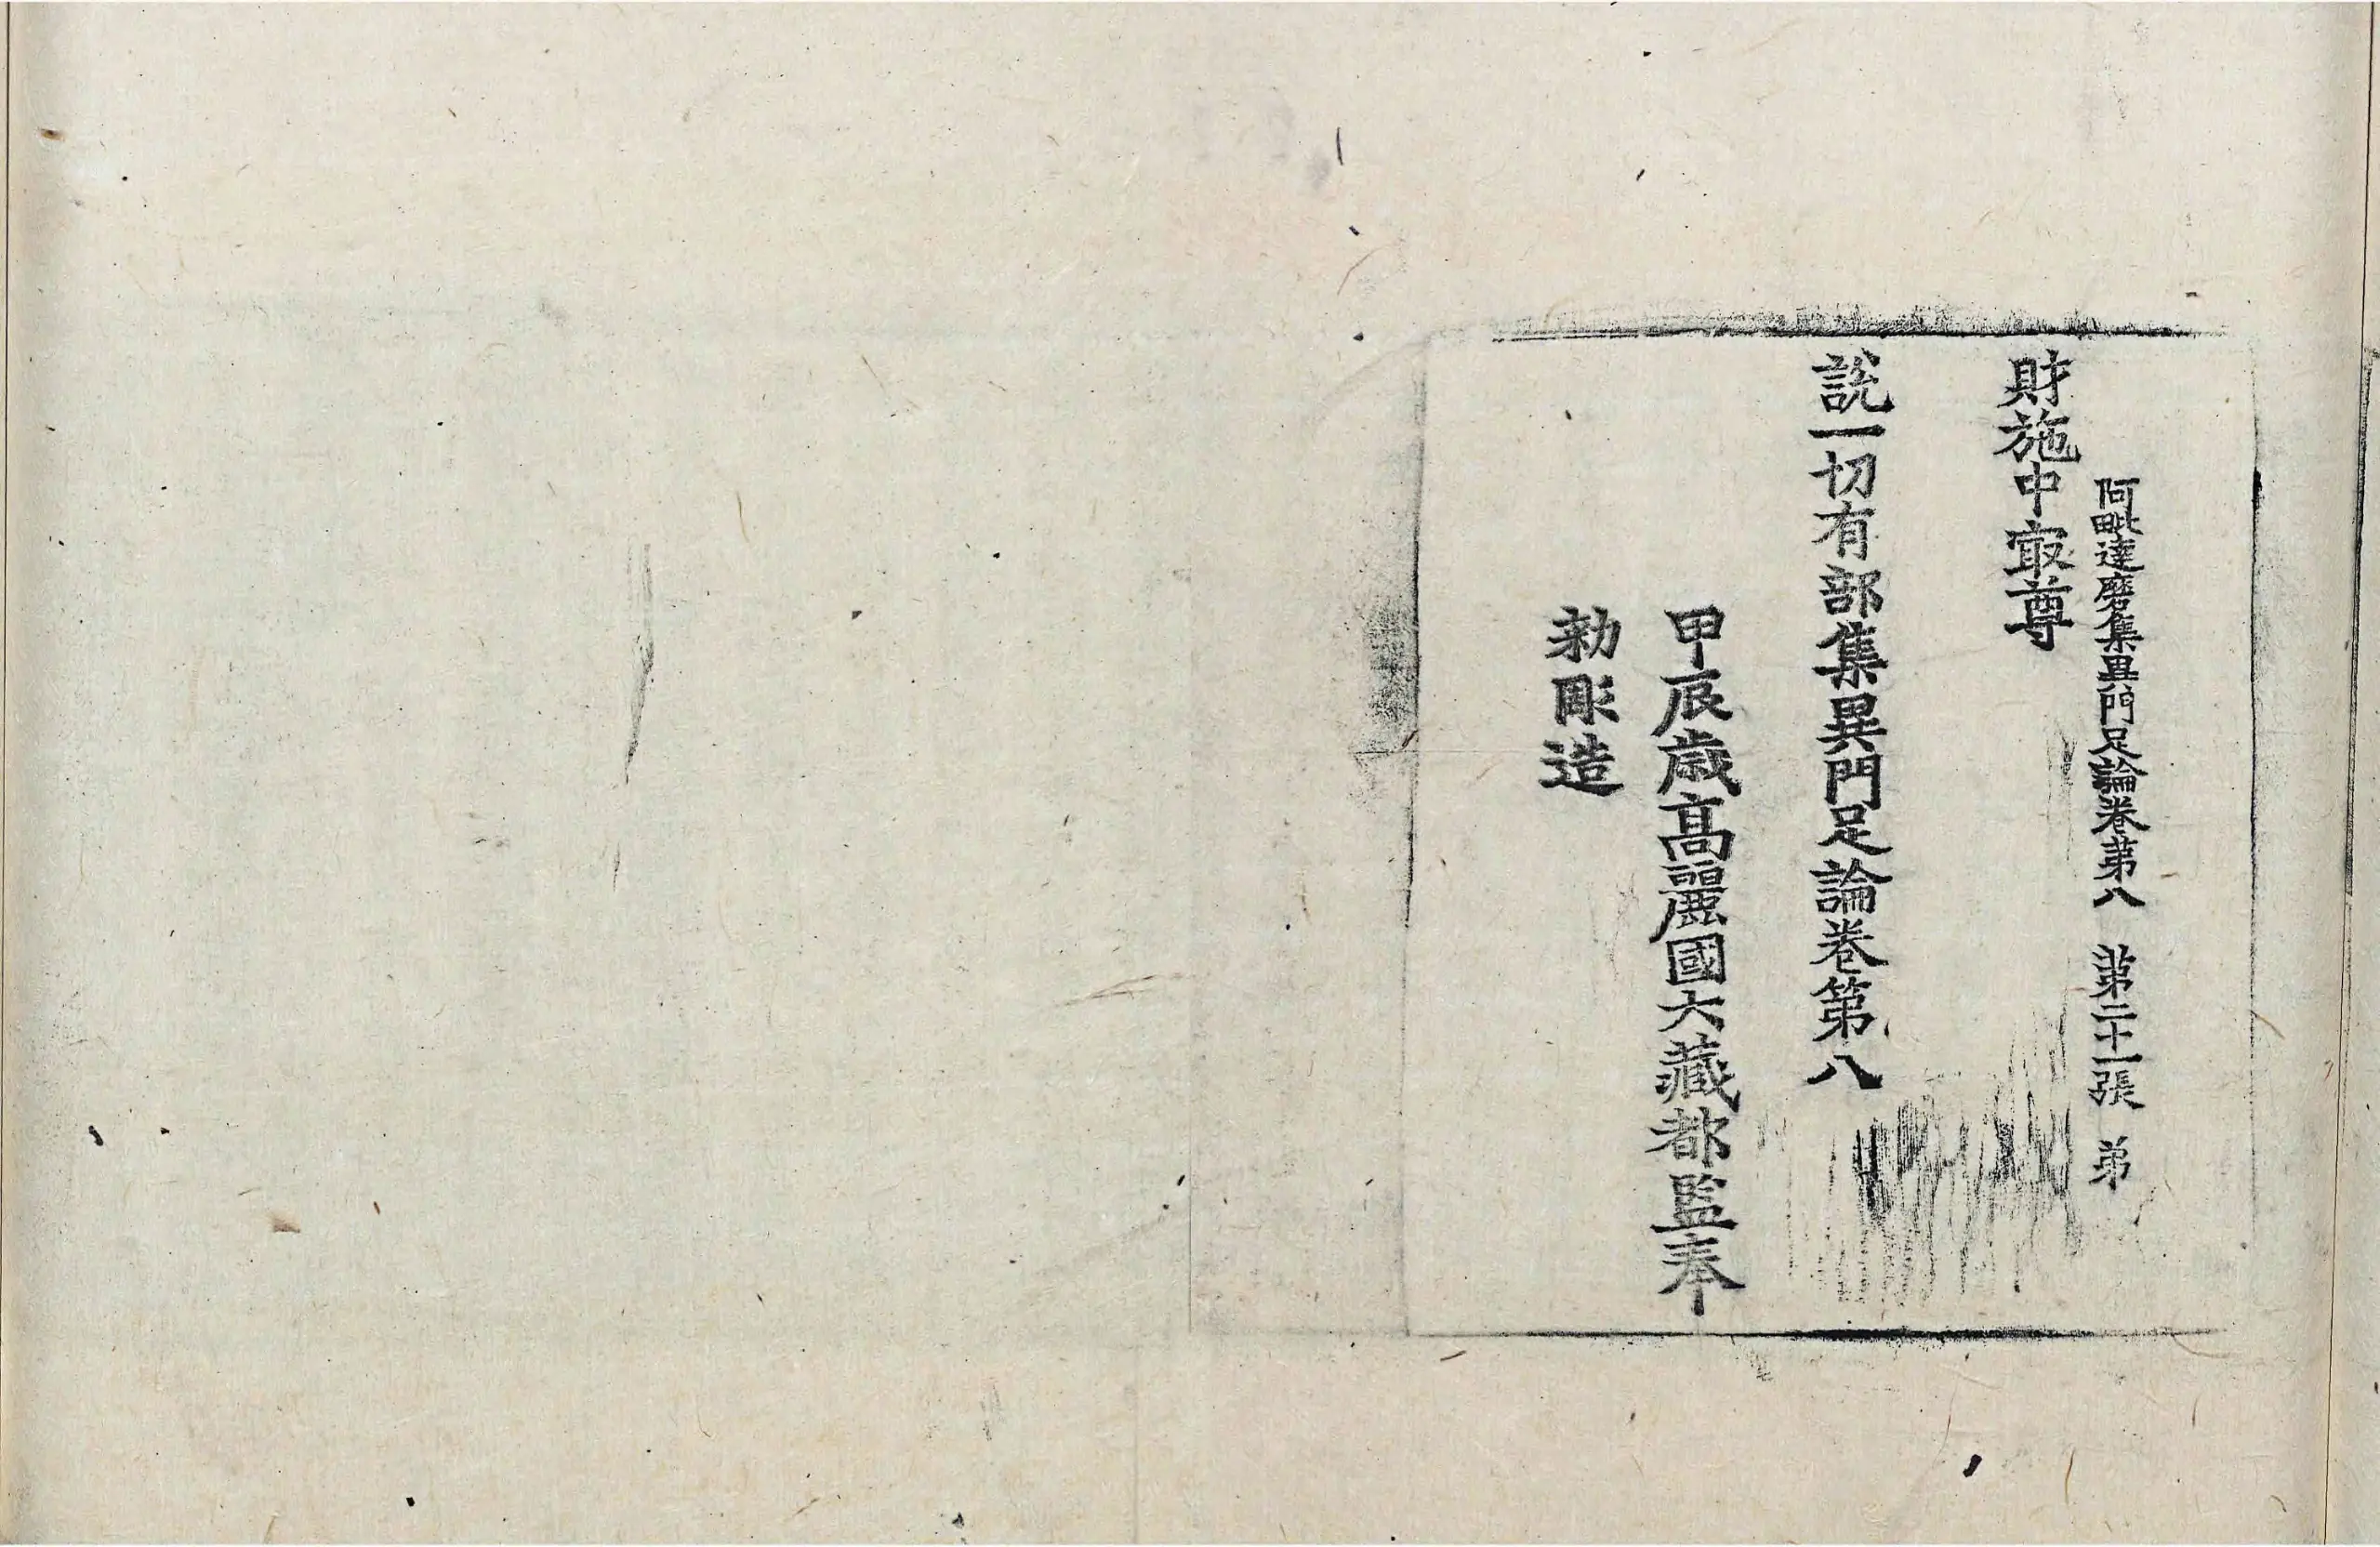 阿毗達磨集異門足論卷苐八 苐二十一張 弟
財施中㝡尊
說一切有部集異門足論卷第八
甲辰歲高麗國大藏都監奉
勑彫造